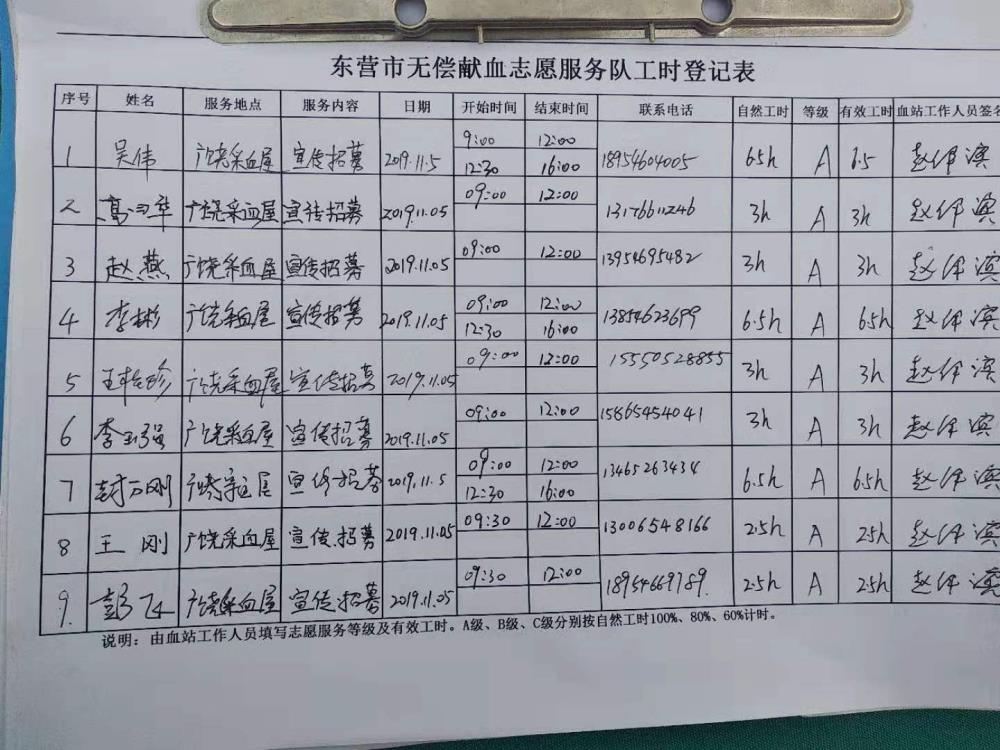 东营市无偿献血志愿服务队工时登记表
序号 姓名 服务地点 服务内容 日期 开始时间 结束时间 联系电话 自然工时 等级 有效工时 血站工作人员签名
1 吴伟 广饶采血屋 宣传招募 2019.11.5 9:00 12:00 18954604005 6.5h A 6.5 赵伊滨
12:30 16:00
2 广饶采血屋 宣转招募 2019.11.05 09:00 12:00 13176611246 3h A 3h 赵伊滨
3 赵燕 广饶采血屋 宣传招募 2019.11.05 09:00 12:00 13954695482 3h A 3h 赵伊滨
4 李彬 广饶采血屋 宣传招募 2019.11.05 09:00 12:00 13854623699 6.5h A 6.5h 赵伊滨
12:30 16:00
5 广饶采血屋 宣传招募 2019.11.05 09:00 12:00 15550528855 3h A 3h 赵伊滨
6 李玉强 广饶采血屋 宣传招募 2019.11.05 09:00 12:00 15865454041 3h A 3h 赵伊滨
7 封万刚 宣传招募 2019.11.5 09:00 12:00 13465263434 6.5h A 6.5h 赵伊滨
12:30 16:00
8 王刚 广饶采血屋 宣传招募 2019.11.05 09:30 12:00 13006548166 2.5h A 2.5h 赵伊滨
9. 彭飞 广饶采血屋 宣传招募 2019.11.05 09:30 12:00 18954669789. 2.5h A 2.5h 赵伊滨
说明：由血站工作人员填写志愿服务等级及有效工时。A级、B级、C级分别按自然工时100%、80%、60%计时。